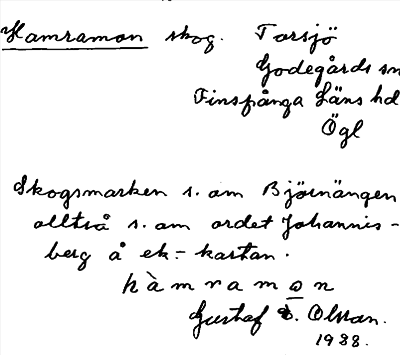 Hamramon skog. Torsjö
Godegårds sn
Finspånga Läns hd
Ögl
Skogsmarken s. om Björnängen
alltså s. om ordet Johannis-
berg å ek:- kartan.
hàmramon
Gustaf E. Olsson.
1938.